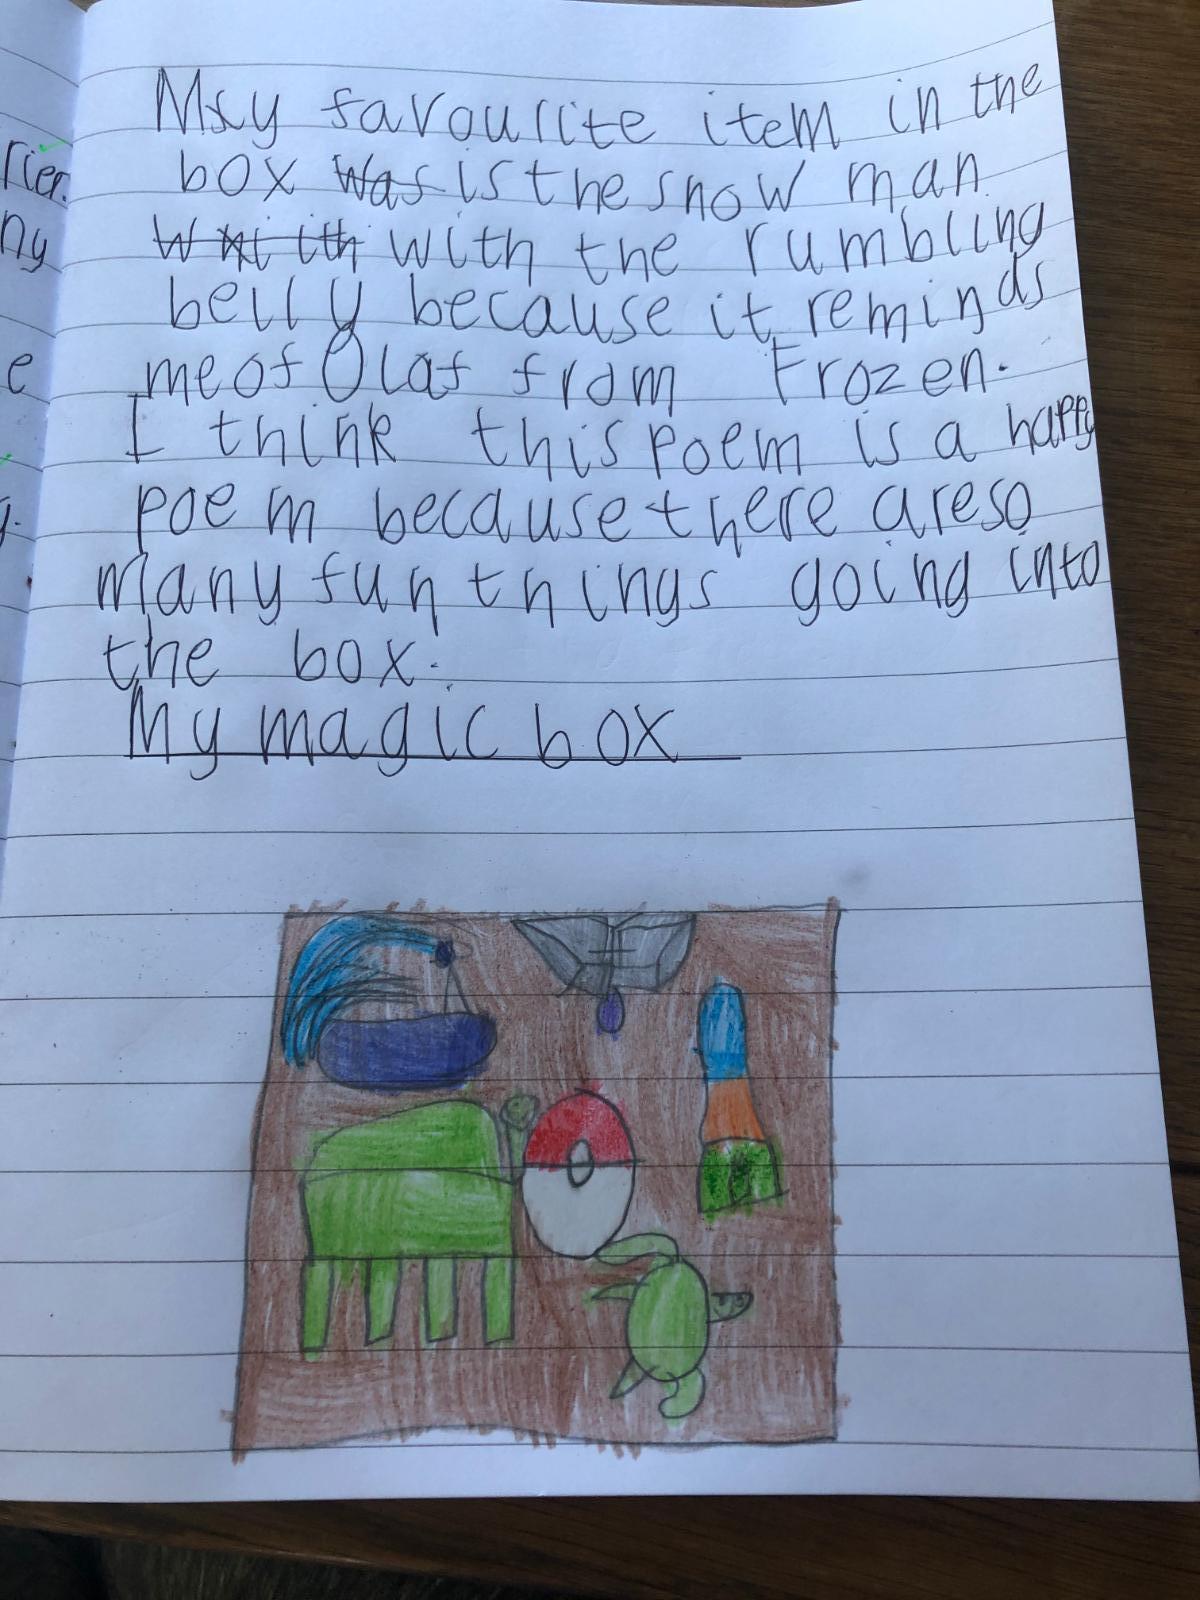 My favourite item in the
box was is the snow man
with with the rumbling
belly because it reminds
me of Olaf from Frozen.
I think this poem is a happy
poem because there are so
many fun things going into
the box.
My magic box